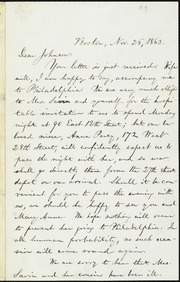 Boston, Nov. 25, 1863.
Dear Johnson:
Your letter is just received. Wife
will, I am happy to say, accompany me
to Philadelphia. We are very much obliged
to Mrs. Savin and yourself for the hospi-
table invitation to us to spend Sunday
night at 90 East 12th street; but our be-
loved niece, Anna Percy, 172 West
28th Street, will confidently expect us to
pass the night with her, and so we
shall go directly there from the 27th street
depot on our arrival. Should it be con-
venient for you to pass the evening with
us, we should be happy to see you and
Mary Anne. We hope nothing will occur
to prevent her going to Philadelphia. In
all human probability, no such occa-
sion will ever occur again.
We are sorry to hear that Mrs.
Savin and her cousins have been ill.